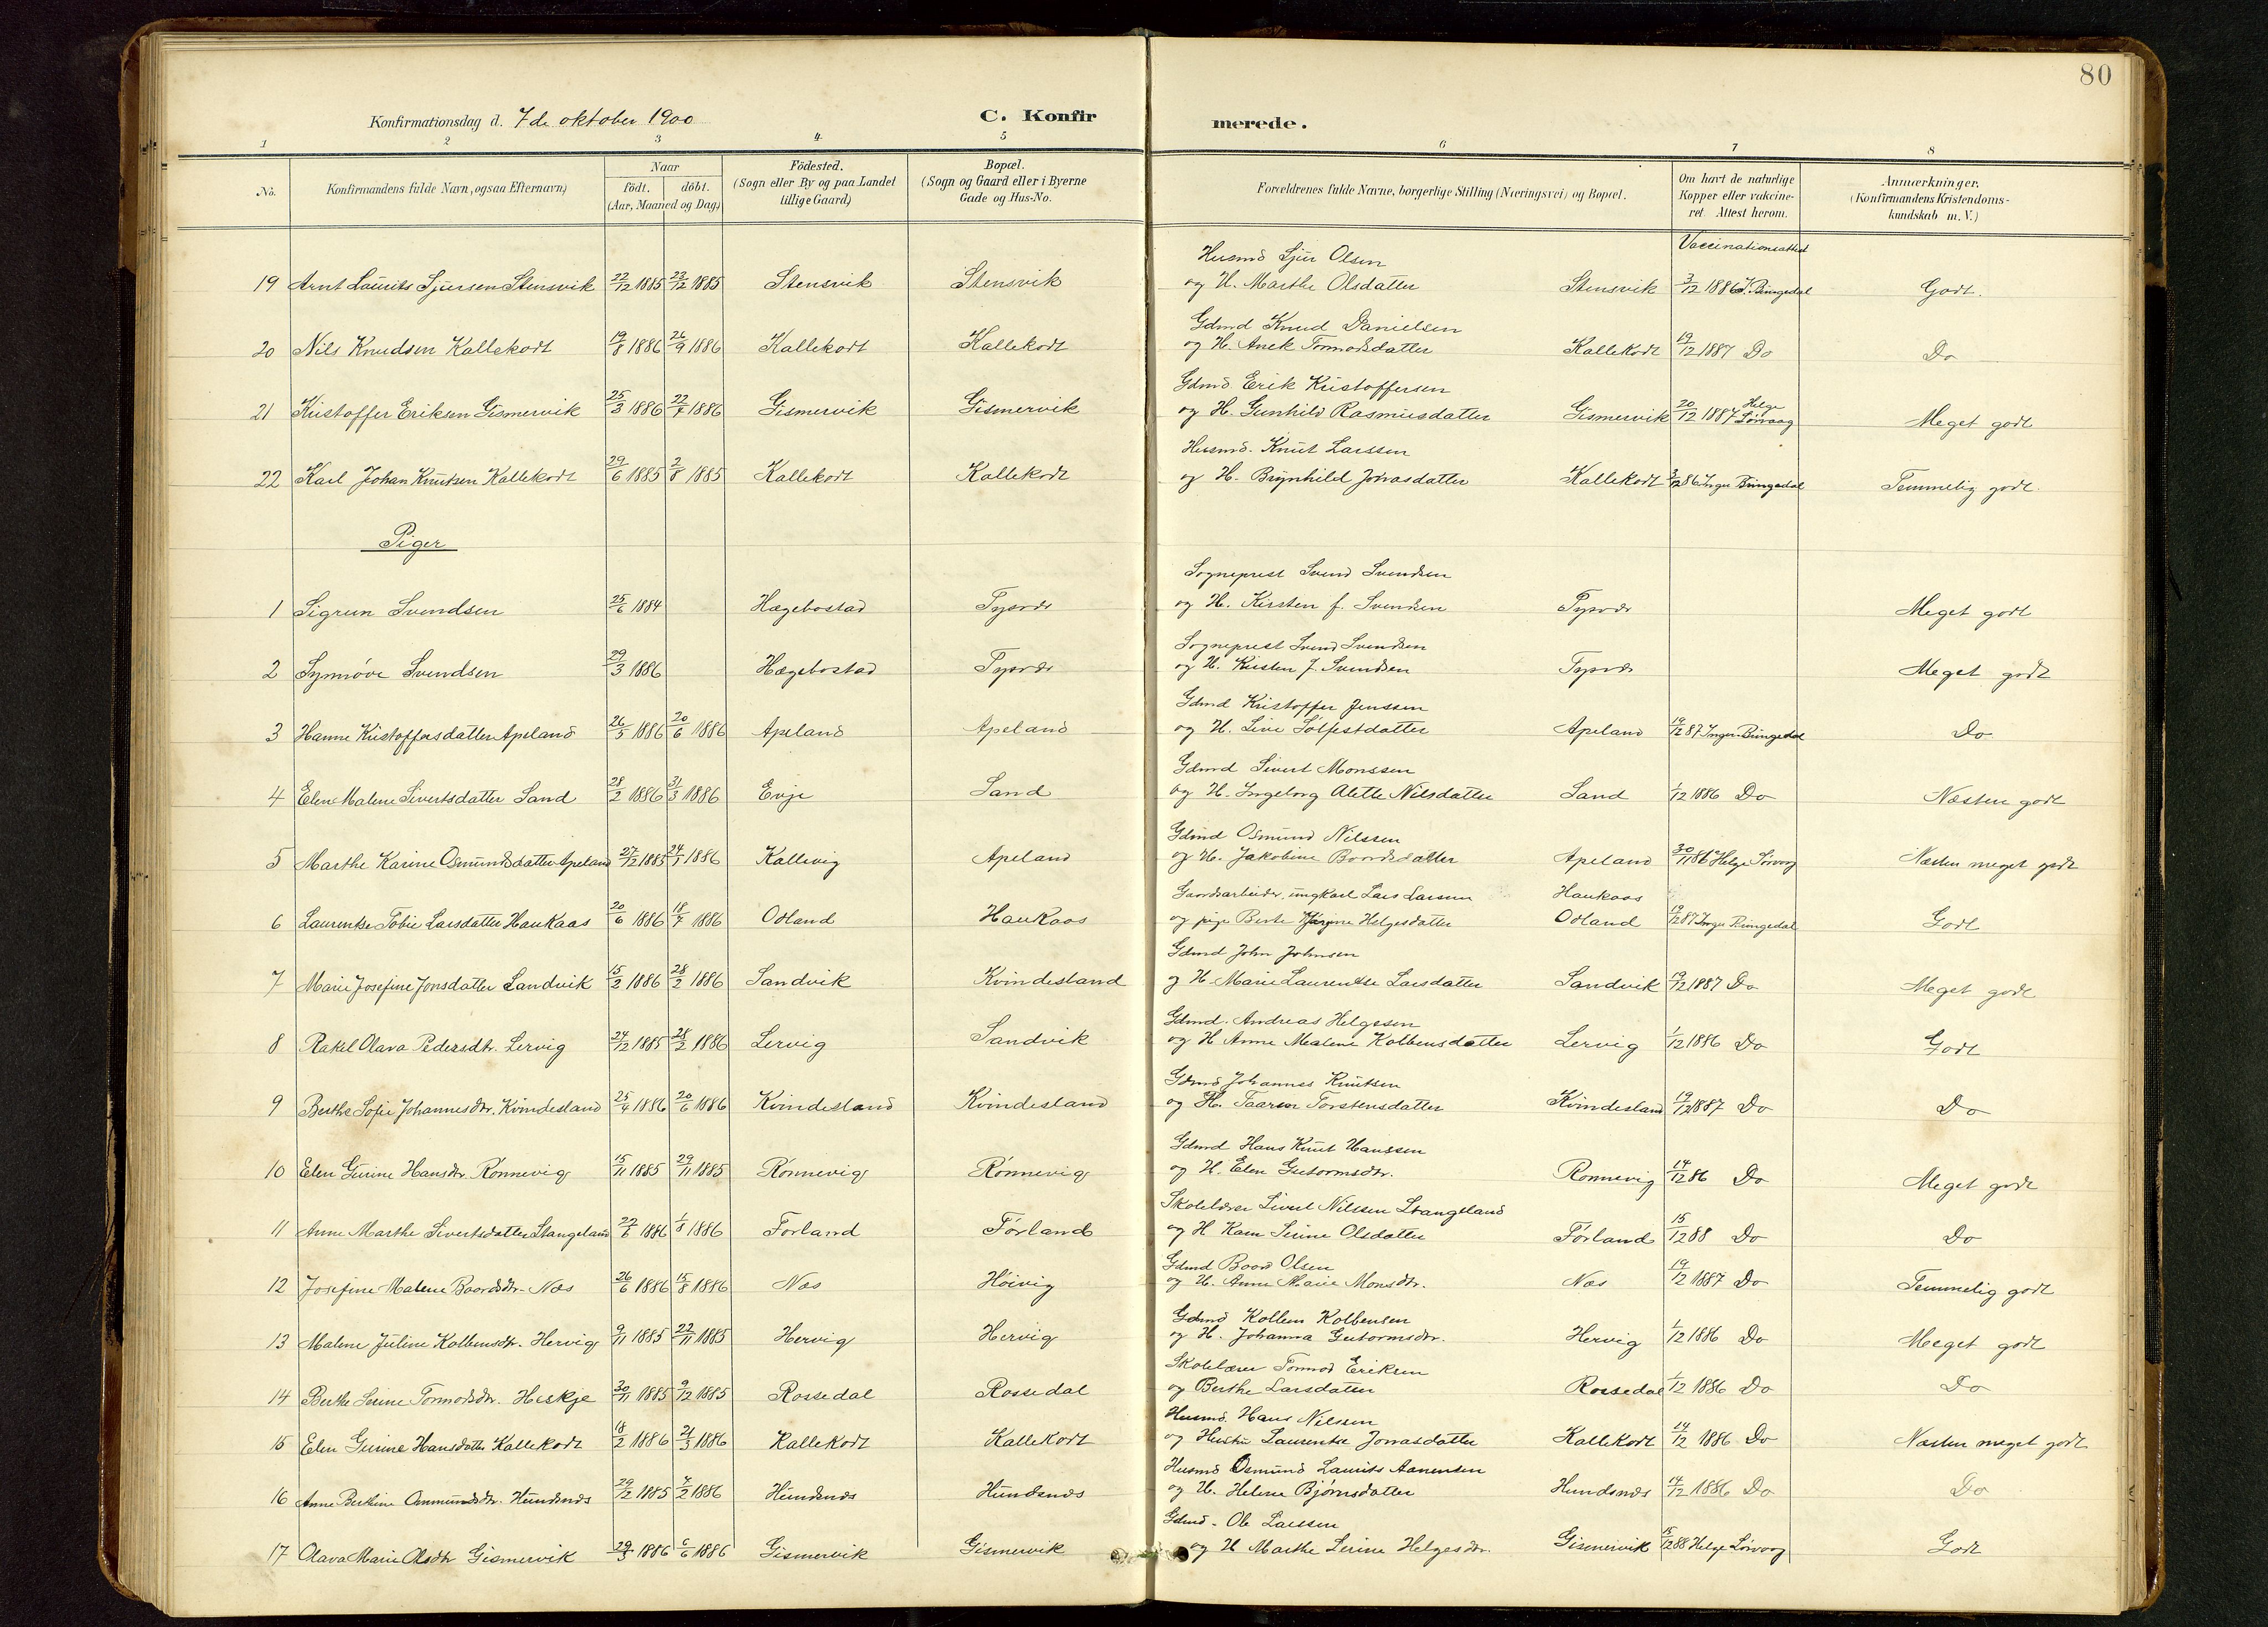 80
Konfirmationsdag d. 7de oktober 1900
C. Konfirmerede.
1 2 3 4 5 6 7 8
No. Konfirmandens fulde Navn, ogsaa Efternavn) Naar födt. döbt. (Aar, Maaned og Dag) Födested. (Sogn eller By og paa Landet tillige Gaard) Bopæl. (Sogn og Gaard eller i Byerne Gade og Hus-No. Forældrenes fulde Navne, borgerlige Stilling (Næringsvei) og Bopæl. Om havt de naturlige Kopper eller vakcineret. Attest herom. Anmærkninger. (Konfirmandens Kristendomskundskab m. V.)
Vaccinationsattest
Husmd Sjur Olsen
19 Arnt Laurits Sjursen Stensvik 22/12 1885 23/12 1885 Stensvik Stensvik og H. Marthe Olsdatter Stensvik 3/12 1886 I. Bringedal Godt.
Gdmd Knud Danielsen
20 Nils Knudsen Kallekodt 19/8 1886 26/9 1886 Kallekodt Kallekodt og H. Anek Tormodsdatter Kallekodt 19/12 1887 Do Do
Gdmd. Erik Kristoffersen
21 Kristoffer Eriksen Gismervik 25/3 1886 22/4 1886 Gismervik Gismervik og H. Gunhild Rasmusdatter Gismervik 20/12 1887 Helge Sörvaag Meget godt
Husmd. Knut Larssen
22 Karl Johan Knutsen Kallekodt 29/6 1885 2/8 1885 Kallekodt Kallekodt og H. Brynhild Jonasdatter Kallekodt 3/12 86 Inger Bringedal Temmelig godt.
Piger
Sogneprest Svend Svendsen
1 Sigrun Svendsen 25/6 1884 Hægebostad Tysvær og H. Kirsten f. Svendsen Tysvær Meget godt
Sogneprest Svend Svendsen
2 Synnöve Svendsen 29/3 1886 Hægebostad Tysvær og H. Kirsten f. Svendsen Tysvær Meget godt
Gdmd Kristoffer Jenssen
3 Hanne Kristoffersdatter Apeland 26/5 1886 20/6 1886 Apeland Apeland og H. Live Sölfestdatter Apeland 19/12 87 Inger Bringedal Do
Gdmd Sivert Monssen
4 Elen Malene Sivertsdatter Sand 28/2 1886 31/3 1886 Evje Sand og H. Ingeborg Alette Nilsdatter Sand 1/12 1886 Do Næsten godt
Gdmd Osmund Nilssen
5 Marthe Karine Osmundsdatter Apeland 27/12 1885 24/1 1886 Kallevig Apeland og H. Jakobine Baardsdatter Apeland 30/11 86 Helge Sörvaag Næsten meget godt
Gaardsarbeider, ungkarl Lars Larssen Haukaas
6 Laurentse Tobie Larsdatter Haukaas 20/6 1886 18/7 1886 Odland Haukaas og pige Berte Helgesdatter Odland 19/12 87 Inger Bringedal Godt
Gdmd John Johnsen
7 Marie Josefine Jonsdatter Sandvik 15/2 1886 28/2 1886 Sandvik Kvindesland og H Marie Laurentse Larsdatter Sandvik 19/12 1887 Do Meget godt
Gdmd. Andreas Helgesen
8 Rakel Olava Pedersdtr. Lervig 24/12 1885 28/2 1886 Lervig Sandvik og H Anne Malene Kolbensdatter Lervig 1/12 1886 Do Godt
Gdmd Johannes Knutsen
9 Berthe Sofie Johannesdtr. Kvindesland 25/4 1886 20/6 1886 Kvindesland Kvindesland og H. Taaren Torstensdatter Kvindesland 19/12 1887 Do Do
Gdmd Hans Knut Hanssen
10 Elen Gurine Hansdtr. Rönnevig 15/11 1885 29/11 1885 Rönnevig Rönnevig og H. Elen Gutormsdtr. Ronnevig 14/12 86 Do Meget godt
Skolelærer Sivert Nilssen Stangeland
11 Anne Marthe Sivertsdatter Stangeland 27/6 1886 1/8 1886 Forland Førland og H Karn Serine Olsdatter Førland 15/12 88 Do Do
Gdmd Baard Olsen
12 Josefine Malene Baardsdtr. Næs 26/6 1886 15/8 1886 Næs Höivig og H. Anne Marie Monsdtr. Næs 19/12 1887 Do Temmelig godt
Gdmd Kolben Kolbensen
13 Malene Juline Kolbensdtr. Hervig 9/11 1885 22/11 1885 Hervig Hervig og H. Johanna Gutormsdtr. Hervig 1/12 1886 Do Meget godt
Skolelærer Tormod Eriksen
14 Berthe Serine Tormodsdtr. Heskje 30/11 1885 9/12 1885 Rossedal Rossedal og Berthe Larsdatter Rossedal 1/12 1886 Do Do
Husmd. Hans Nilssen
15 Elen Gurine Hansdatter Kallekodt 18/2 1886 21/3 1886 Kallekodt Kallekodt og Hustru Laurentse Jonasdatter Kallekodt 14/12 1886 Do Næsten meget godt
Husmd Osmund Laurits Aanensen
16 Anne Berthine Ommundsdtr. Hundsnæs 29/12 1885 7/2 1886 Hundsnæs Hundsnæs og H. Helene Bjørnsdatter Hundsnæs 14/12 1886 Do Do
Gdmd. Ole Larssen
17 Olava Marie Olsdtr Gismervik 29/3 1886 6/6 1886 Gismervik Gismervik og H Marthe Serine Helgesdtr. Gismervik 15/12 88 Helge Sörvaag Godt